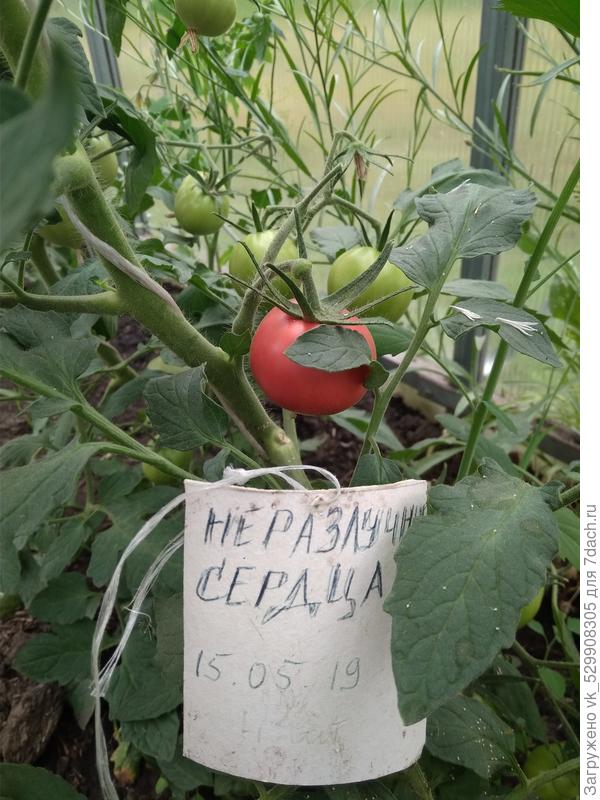 НЕРАЗЛУЧН
СЕРДЦА
15.05.19
Загружено vk_529908305 для 7dach.ru